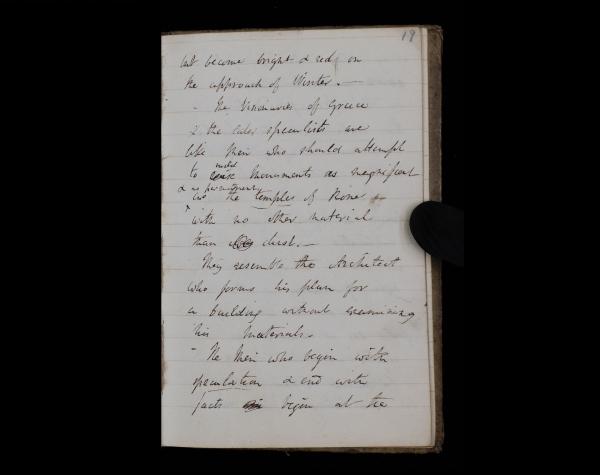 19
but become bright & red on
the approach of Winter. —
- The Visionaries of Greece
& the speculists are
like Men who should attempt
to raise Monuments as magnificent
& as permanent
as the temples of Rome
with no other material
than dust. —
They resemble the Architect
who forms his plan for
a building without examining
his Materials.
- The Men who begin with
speculation & end with
facts begin at the